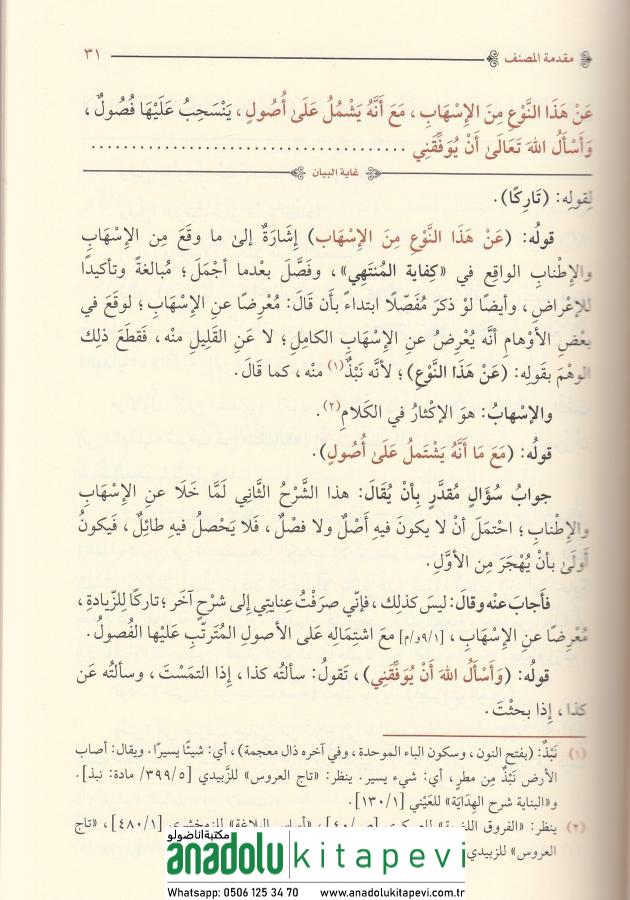 مقدمة المصنف
٣١
عَنْ هَذَا النَّوْعِ مِنَ الإِسْهَابِ، مَعَ أَنَّهُ يَشْمُلُ عَلَىٰ أُصُولٍ، يَنْسَحِبُ عَلَيْهَا فُصُولٌ،
وَأَسْأَلُ اللهَ تَعَالَىٰ أَنْ يُوَفِّقَنِي ......................................
غاية البيان
لِقولِه: (تَارِكًا).
قولُه: (عَنْ هَذَا النَّوْعِ مِنَ الإِسْهَابِ) إشَارَةٌ إلىٰ ما وقَعَ مِن الإسْهَابِ
والإطْنابِ الواقِعِ في «كِفاية المُنتَهِي»، وفَصَّلَ بعْدما أجْمَلَ؛ مُبالغةً وتأكيدًا
للإعْراضِ، وأيضًا لوْ ذكرَ مُفَصّلًا ابتداءً بأَن قَالَ: مُعْرِضًا عنِ الإسْهَابِ؛ لوقَعَ في
بعْضِ الأوْهامِ أنَّه يُعْرِضُ عنِ الإسْهَابِ الكامِلِ؛ لا عَنِ القَلِيلِ منْه، فَقَطَعَ ذلِك
الوهْمَ بقَولِه: (عَنْ هَذَا النَّوْعِ)؛ لأنَّه نَبْذٌ(١) منْه، كما قَالَ.
والإسْهابُ: هوَ الإكْثارُ في الكَلامِ(٢).
قولُه: (مَعَ مَا أَنَّهُ يَشْتَمِلُ عَلَىٰ أُصُولٍ).
جوابُ سُؤَالٍ مُقدَّرٍ بِأنْ يُقَالَ: هذا الشَّرْحُ الثَّانِي لَمَّا خَلَا عنِ الإسْهَابِ
والإطْنابِ؛ احْتمَلَ أنْ لا يكونَ فيهِ أَصْلٌ ولا فصْلٌ، فَلا يَحْصلُ فيهِ طائِلٌ، فَيكونُ
أَولَىٰ بأنْ يُهْجَرَ مِن الأوَّلِ.
فأجابَ عنْه وقالَ: ليسَ كذلِك، فإنّي صرَفْتُ عِنايتِي إلى شرْحٍ آخَر؛ تاركًا لِلزّيادةِ،
مُعْرِضًا عنِ الإسْهَابِ، [٩/١و/م] معَ اشتِمالِه عَلى الأصولِ المُترتّبِ عَليْها الفُصولُ.
قولُه: (وَأَسْأَلُ اللهَ أَنْ يُوَفِّقَنِي)، تَقولُ: سألتُه كذا، إذا التمَسْتَ، وسألتُه عَن
كذا، إذا بحثْتَ.
(١) نَبْذٌ: (بفتح النون، وسكون الباء الموحدة، وفي آخره ذال معجمة)، أي: شيئًا يسيرًا. ويقال: أصاب
الأرض نَبْذٌ مِن مطرٍ، أي: شيء يسير. ينظر: «تاج العروس» للزَّبيدي [٣٩٩/٥/ مادة: نبذ].
و«البناية شرح الهِدَاية» للعَيْني [١٣٠/١].
(٢) ينظر: «الفروق [٤٨٠/١]، «تاج
العروس» للزبيدي
مكتبة اناضولو
anadolu kitapevi
Whatsapp: 0506 125 34 70 www.anadolukitapevi.com.tr